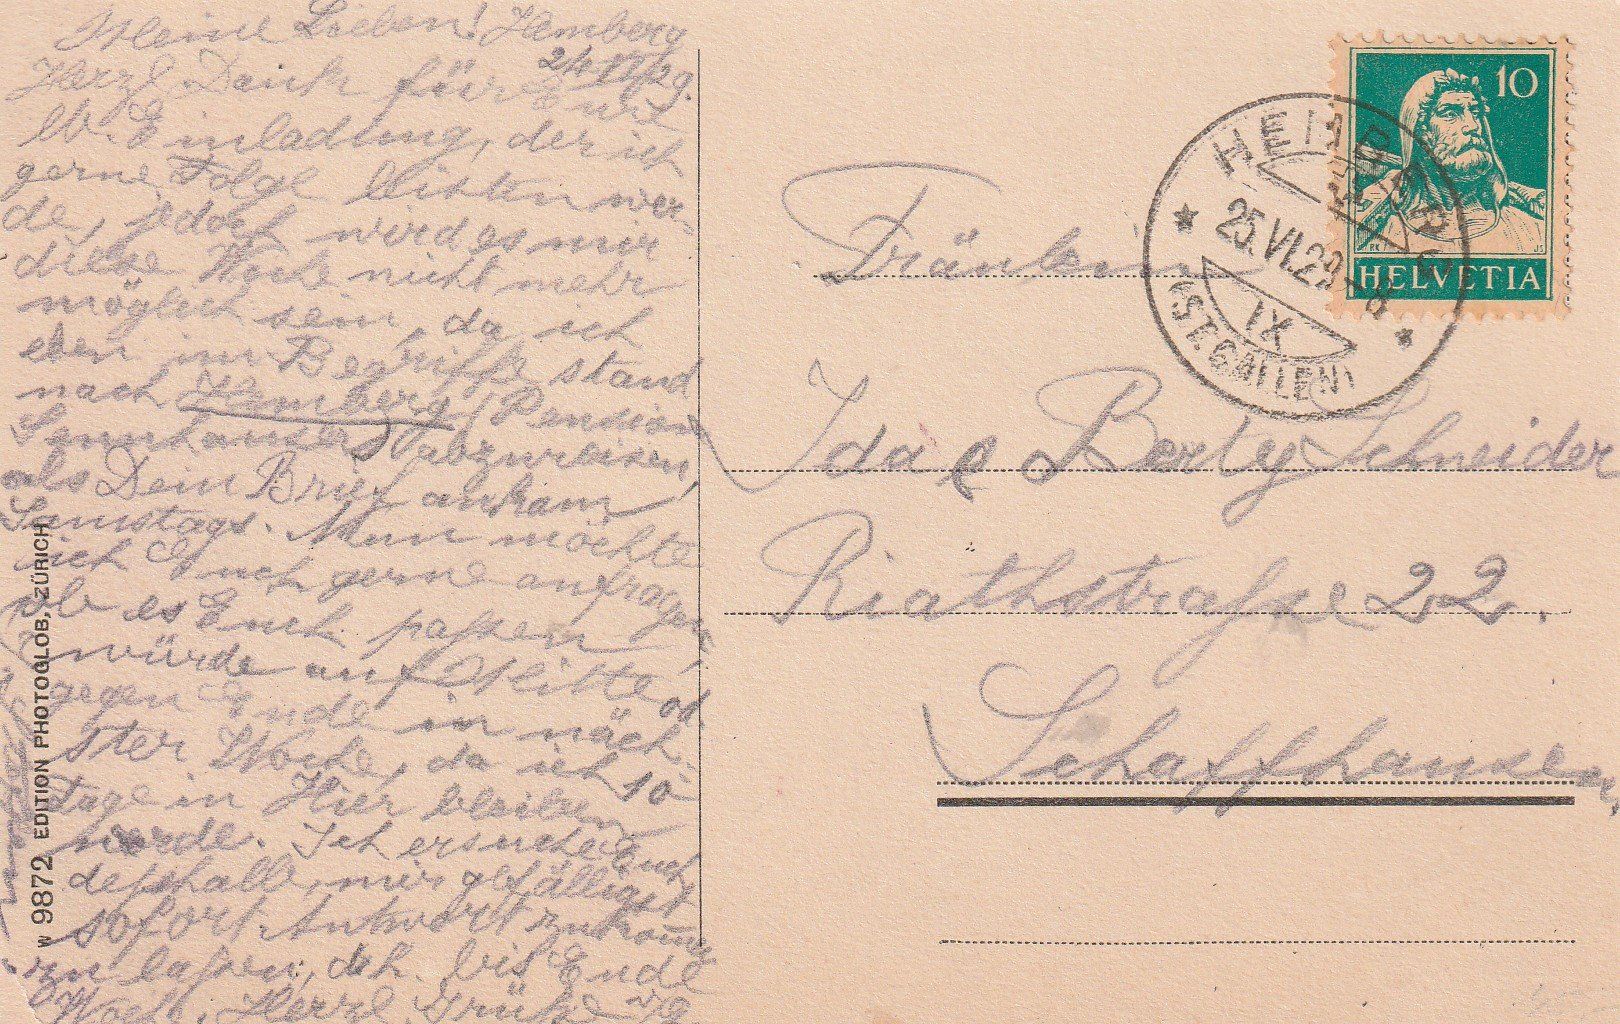 Meine Lieben! Hemberg
24.VI.29.
Herzl. Dank für Eure
lb. Einladung, der ich
gerne Folge leisten wer-
de, jedoch wird es mir
diese Woche nicht mehr
möglich sein, da ich
eben im Begriffe stand
nach Hemberg (Pension
Sennhauser) abzureisen,
als Dein Brief ankam
Samstags. Nun möchte
ich Euch gerne anfragen,
ob es Euch passen
würde auf Mitte od.
gegen Ende in näch-
ster Woche, da ich 10
Tage in Hier bleiben
werde. Ich ersuche Euch
deßhalb, mir gefälligst
sofort Antwort zukomm
zu laßen, d.h. bis Ende
Woche. Herzl. Grüße
W 9872 EDITION PHOTOGLOB, ZÜRICH
10
HELVETIA
HEMBERG
25.VI.29
IX
(ST. GALLEN)
Fräulein
Ida & Berty Schneider
Riethstraße 22.
Schaffhausen.